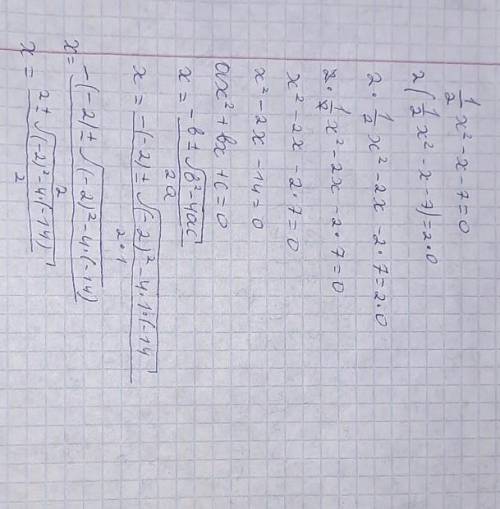 1/2 x² - x - 7 = 0
2(1/2 x² - x - 7) = 2·0
2·1/2 x² - 2x - 2·7 = 2·0
2·1/2 x² - 2x - 2·7 = 0
x² - 2x - 2·7 = 0
x² - 2x - 14 = 0
ax² + bx + c = 0
x = -b ± √b² - 4ac / 2a
x = -(-2) ± √(-2)² - 4·1·(-14 / 2·1
x = -(-2) ± √(-2)² - 4·(-14) / 2
x = 2 ± √(-2² - 4·(-14) / 2